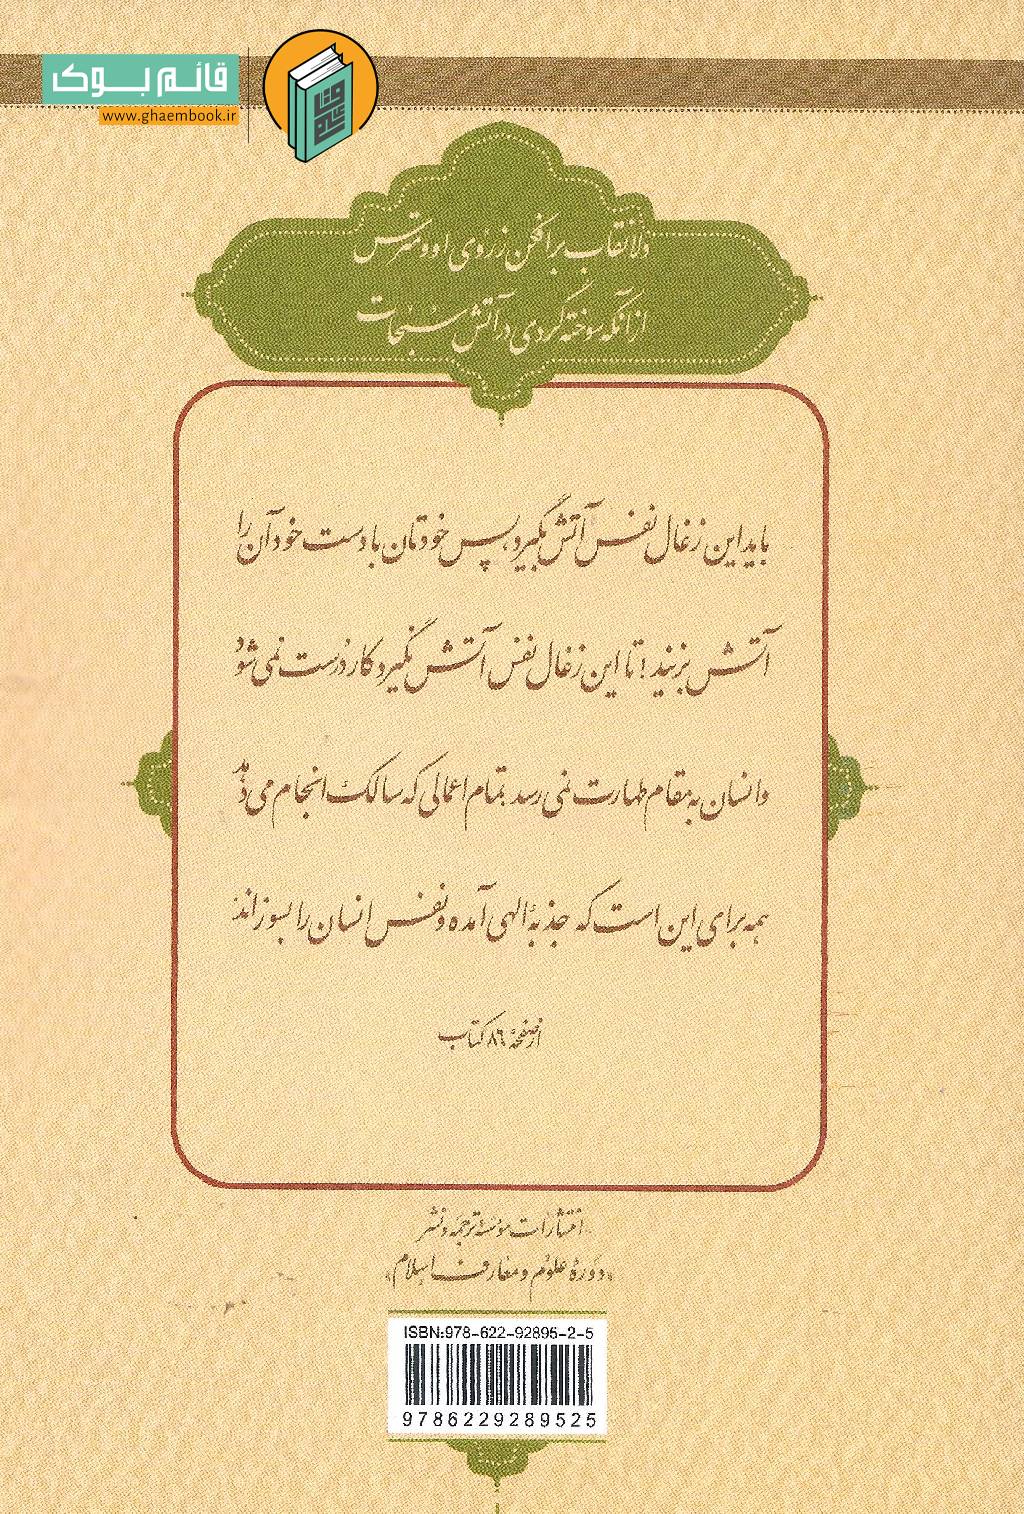 قائم بوک
www.ghaembook.ir
دلا نقاب برافکن ز روی او و مترس
از آنکه سوخته گردی در آتش سبحات
باید این زغال نفس آتش بگیرد، پس خودتان با دست خود آن را
آتش بزنید! تا این زغال نفس آتش نگیرد کار درست نمی‌شود
و انسان به مقام طهارت نمی‌رسد تمام اعمالی که سالک انجام می‌دهد
همه برای این است که جذبهٔ الهی آمده و نفس انسان را بسوزاند
از صفحهٔ ۸۶ کتاب
انتشارات مؤسسهٔ ترجمه و نشر
«دورهٔ علوم و معارف اسلام»
ISBN:978-622-92895-2-5
9786229289525